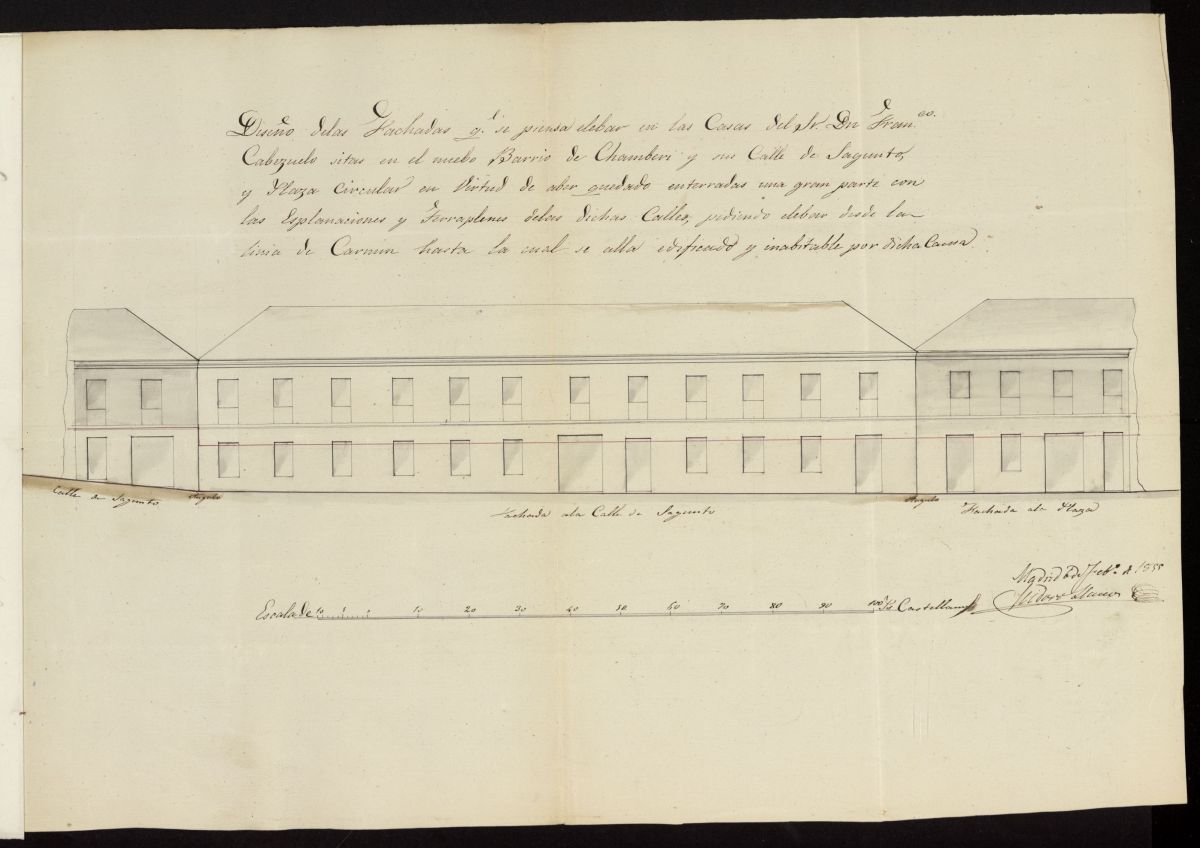 Diseño delas Fachadas q.e se piensa elebar en las Casas del Sr. Dn Fran.co
Cabezuelo sitas en el nuebo Barrio de Chamberi y sus Calle de Sagunto,
y Plaza circular en Virtud de aber quedado enterradas una gran parte con
las Esplanaciones y Terraplenes delas dichas Calles, pidiendo elebar desde la
linia de Carmin hasta la cual se alla edificado y inabitable por dicha Causa
Calle de Sagunto
Angulo
Fachada ala Calle de Sagunto
Angulo
Fachada ala Plaza
Madrid 6 de Feb.o de 1855
Isidoro Llanos
Escala de 10 5 0 10 20 30 40 50 60 70 80 90 100 Ps. Castellanos